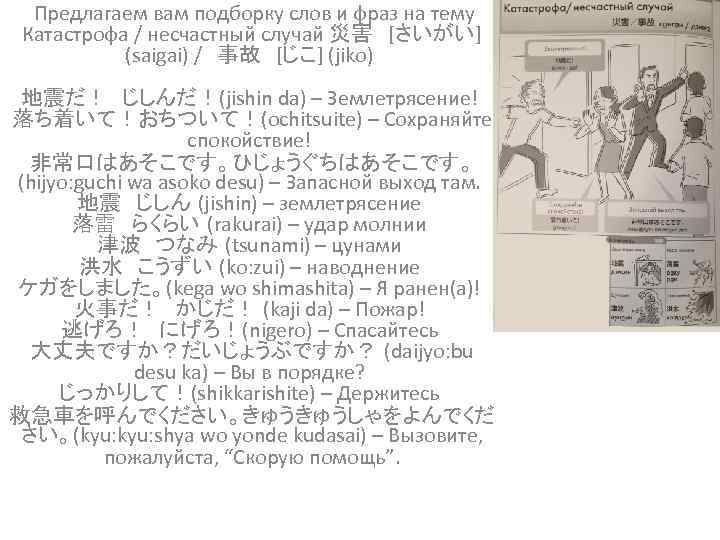 Предлагаем вам подборку слов и фраз на тему
Катастрофа / несчастный случай 災害 [さいがい]
(saigai) / 事故 [じこ] (jiko)
地震だ！ じしんだ！(jishin da) – Землетрясение!
落ち着いて！おちついて！(ochitsuite) – Сохраняйте
спокойствие!
非常口はあそこです。ひじょうぐちはあそこです。
(hijyo: guchi wa asoko desu) – Запасной выход там.
地震 じしん (jishin) – землетрясение
落雷 らくらい (rakurai) – удар молнии
津波 つなみ (tsunami) – цунами
洪水 こうずい (ko: zui) – наводнение
ケガをしました。(kega wo shimashita) – Я ранен(а)!
火事だ！ かじだ！ (kaji da) – Пожар!
逃げろ！ にげろ！(nigero) – Спасайтесь
大丈夫ですか？だいじょうぶですか？ (daijyo: bu
desu ka) – Вы в порядке?
じっかりして！(shikkarishite) – Держитесь
救急車を呼んでください。きゅうきゅうしゃをよんでくだ
さい。(kyu: kyu: shya wo yonde kudasai) – Вызовите,
пожалуйста, “Скорую помощь”.
Катастрофа/несчастный случай
災害／事故
地震
落雷
津波
洪水